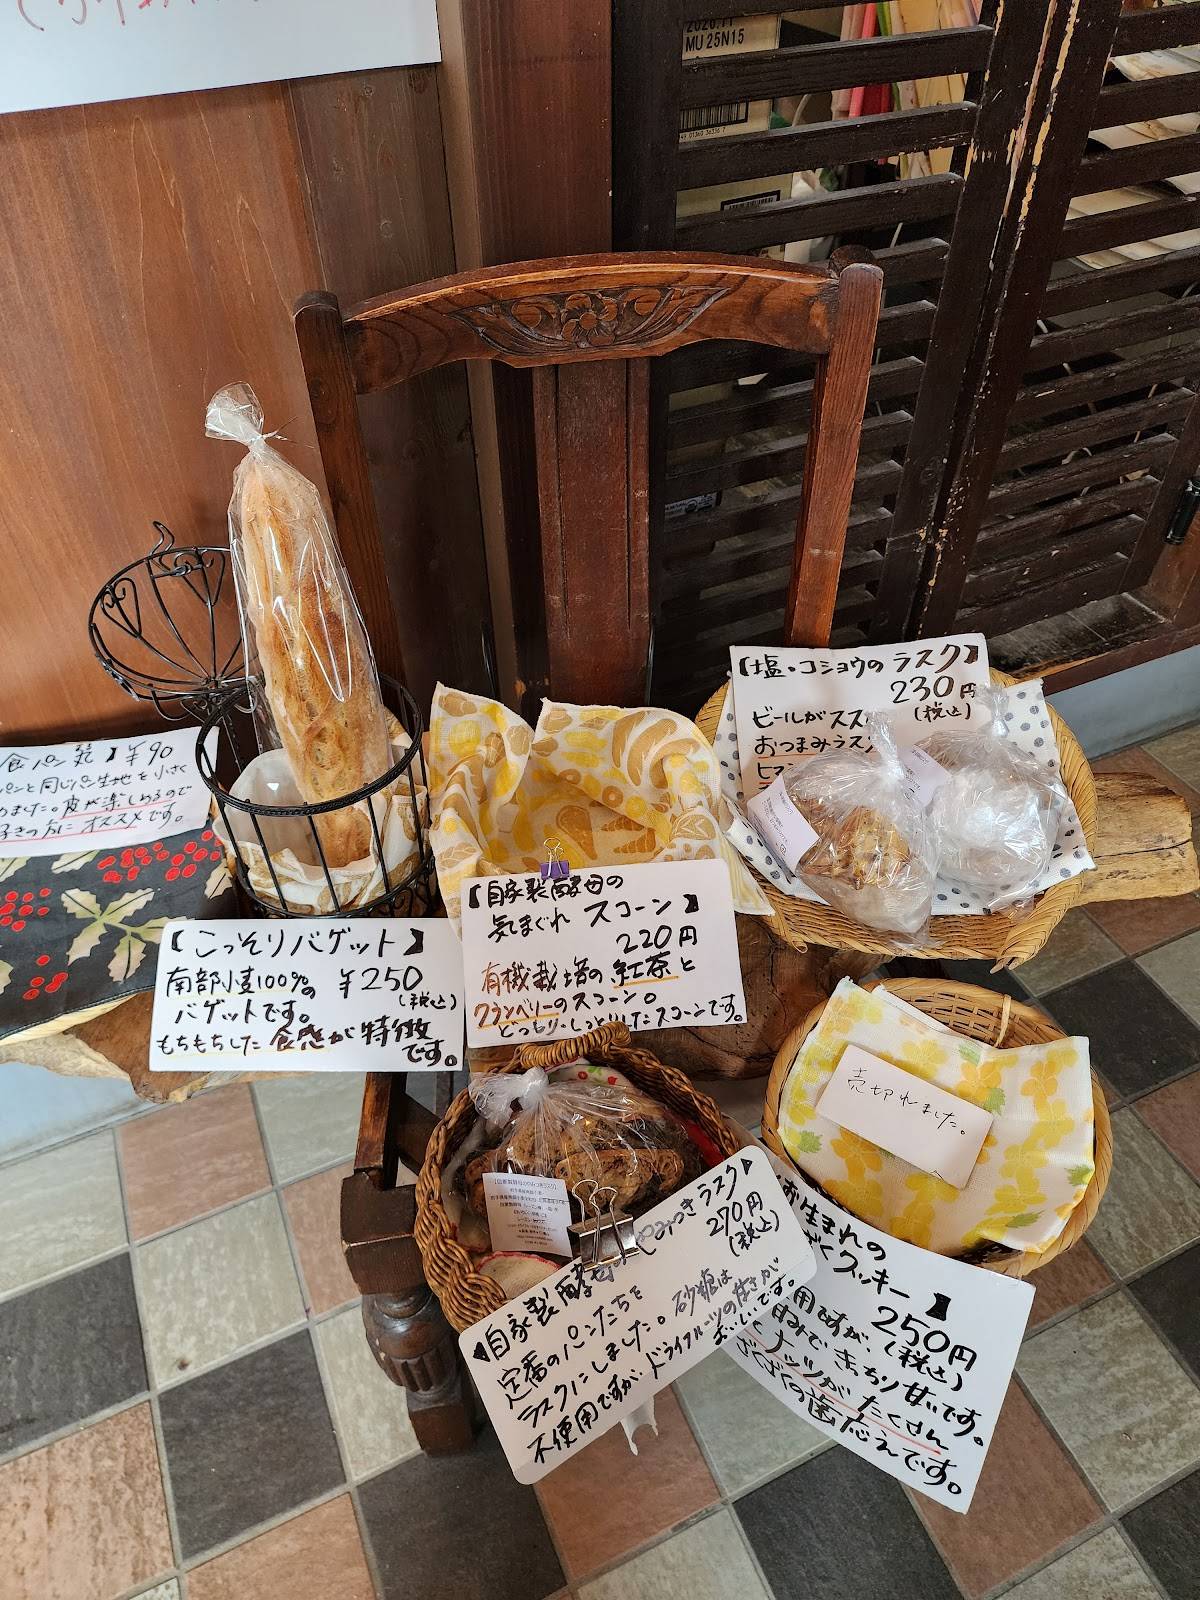 2026.11
MU 25N15
食パン 丸】 ¥90
パンと同じパン生地を小さく
めました。皮が楽しめるので
好きの方に オススメです。
【こっそりバゲット】
南部小麦100%の ¥250
(税込)
バゲットです。
もちもちした 食感が 特徴
です。
【自家製酵母の
気まぐれ スコーン】
220円
有機栽培の 紅茶と
クランベリーのスコーン。
どっちりーしっとりしたスコーンです。
【塩・コショウの ラスク】
230円
(税込)
ビールがスス
おつまみラス
売切れました。
自家製酵母
つきラスク
270円
(税込)
定番のパンたちを
ラスクにしました。砂糖は
不使用ですが、ドライフルーツの甘さが
おいしいです。
お生まれの
ざくクッキー】
250円
(税込)
用ですが、
甘みで きっちり 甘いです。
ナッツが たくさん
ざくざくの歯応えです。